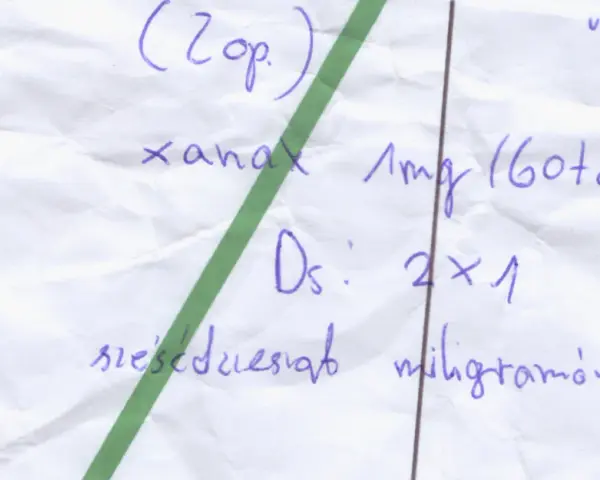 (2 op.)
xanax 1mg (60t.
Ds: 2 x 1
sześćdziesiąt miligramó